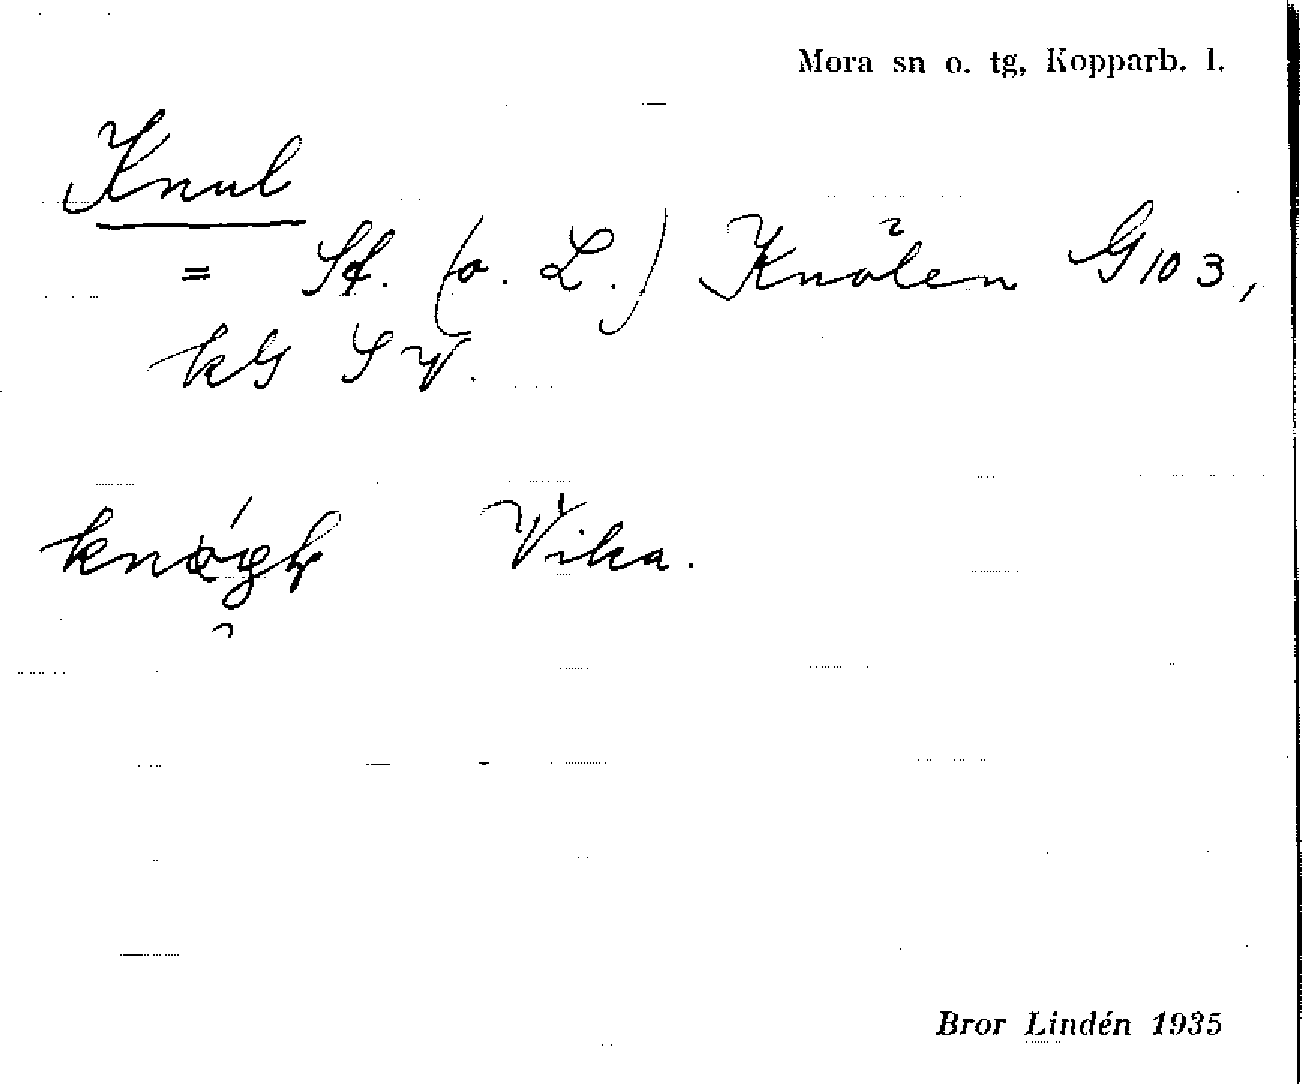 Mora sn o. tg, Kopparb. l.
Knul
= St. (o. L.) Knölen G103,
kG SV.
Vika.
Bror Lindén 1935